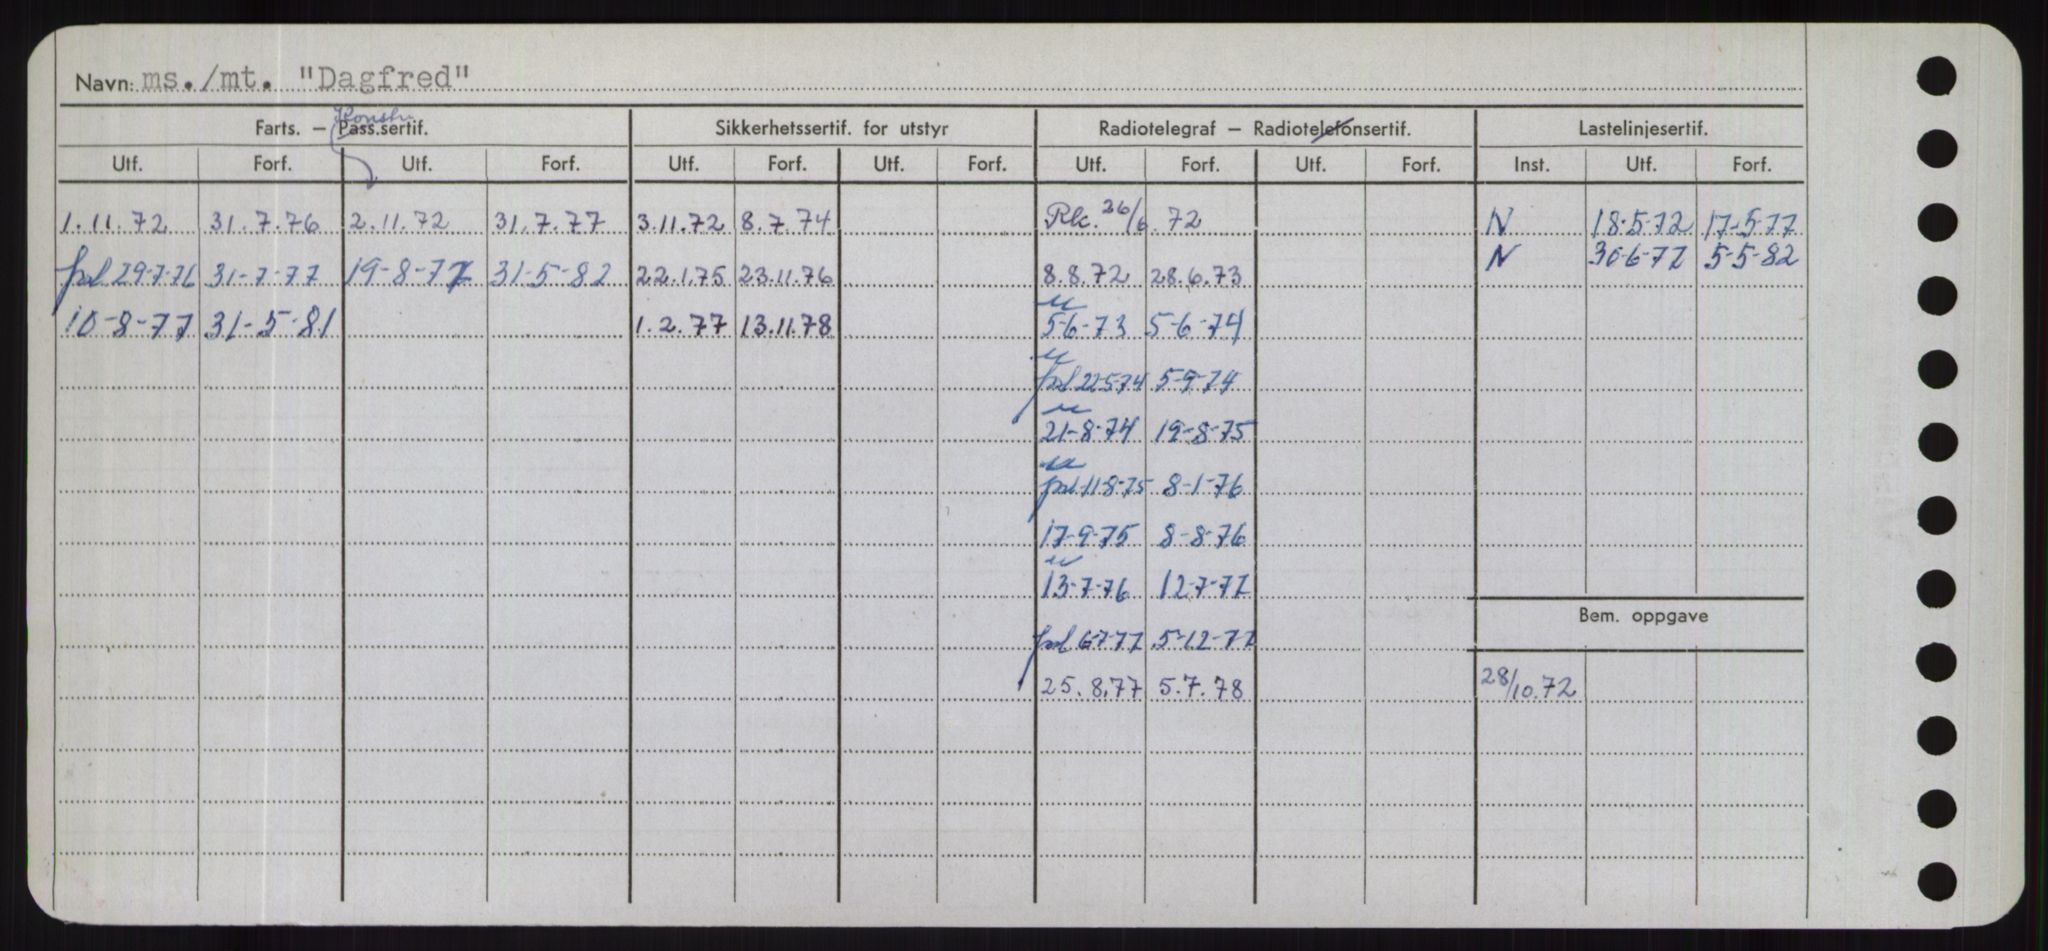 Navn: ms./mt. "Dagfred"
Konstr.
Farts. – Pass.sertif. Sikkerhetssertif. for utstyr Radiotelegraf – Radiotelefonsertif. Lastelinjesertif.
Utf. Forf. Utf. Forf. Utf. Forf. Utf. Forf. Utf. Forf. Utf. Forf. Inst. Utf. Forf.
1.11.72 31.7.76 2.11.72 31.7.77 3.11.72 8.7.74 Rk. 26/6.72 N 18-5-72 17-5-77
N 30-6-77 5-5-82
fol 29-7-76 31-7-77 19-8-77 31-5-82 22.1.75 23.11.76 8.8.72 28.6.73
10-8-77 31-5-81 1.2.77 13.11.78 5-6-73 5-6-74
fol 22-5-74 5-9-74
21-8-74 19-8-75
fol 11-8-75 8-1-76
17-9-75 8-8-76
13-7-76 12-7-77
Bem. oppgave
fol 6-7-77 5-12-77
25.8.77 5.7.78 28/10.72